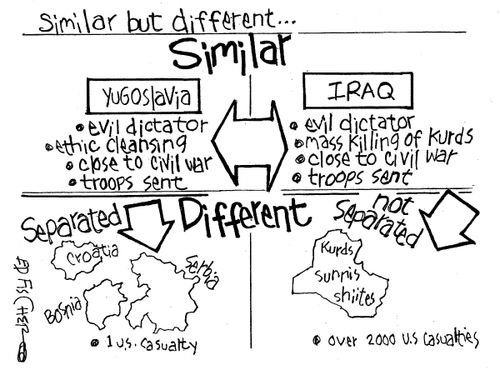 Similar but different...
Similar
YUGOSlaViA
• evil dictator
• ethic cleansing
• close to civil war
• troops sent
IRAQ
• evil dictator
• mass killing of kurds
• close to civil war
• troops sent
Different
Separated
Croatia
Bosnia
Serbia
• 1 u.s. casualty
not
Separated
Kurds
Sunnis
shiites
• over 2000 U.S casualties
ED FISCHER